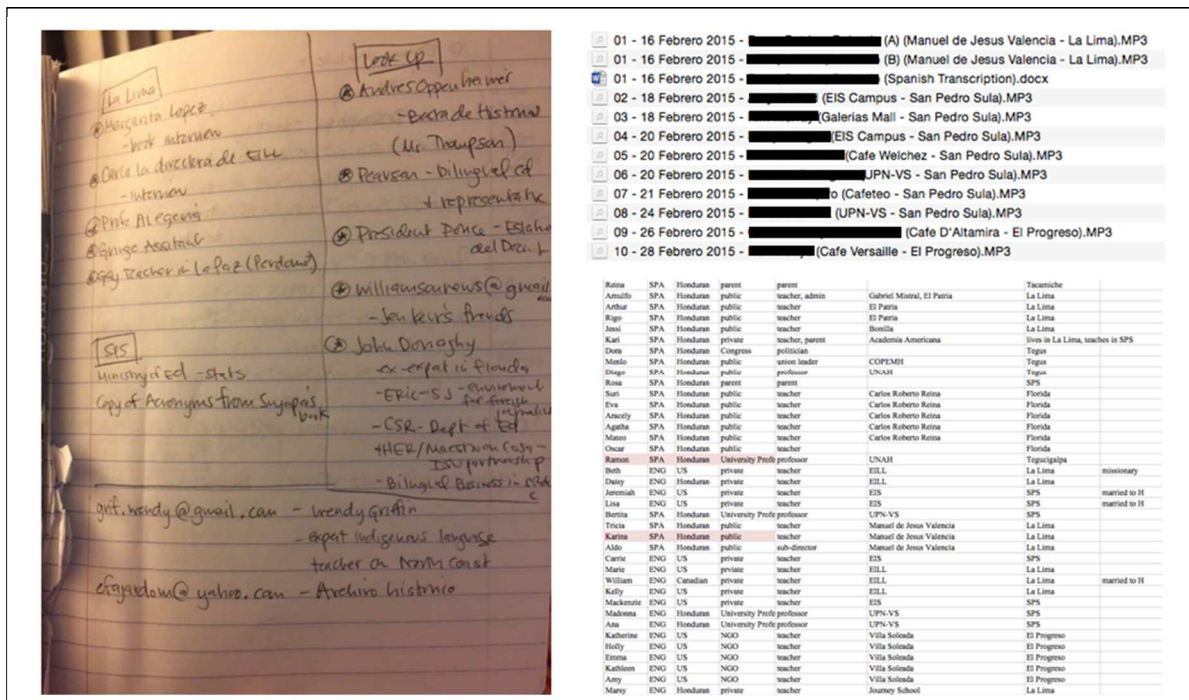 La Lima
Margarita Lopez
- book interview
Carla la directora de EILL
- Interview
Profe Alegria
Gringo
Gay Teacher in La Paz (Perdomo)
SPS
Ministry of Ed - stats
Copy of Acronyms from Suyapa's book
Look up
Andres Oppenheimer
- Basta de Historias
(Mr. Thompson)
Pearson - bilingual ed
representative
President Ponce -
williamsonnews@gmail
- friends
John Donaghy
ex-expat in
- ERIC-SJ -
for foreign
- CSR - Dept of Ed
- Bilingual Business in
grif.wendy@gmail.com - Wendy Griffin
- expat indigenous language
teacher on North Coast
efajardom@yahoo.com - Archivo historico
01 - 16 Febrero 2015 - (A) (Manuel de Jesus Valencia - La Lima).MP3
01 - 16 Febrero 2015 - (B) (Manuel de Jesus Valencia - La Lima).MP3
01 - 16 Febrero 2015 - (Spanish Transcription).docx
02 - 18 Febrero 2015 - (EIS Campus - San Pedro Sula).MP3
03 - 18 Febrero 2015 - (Galerias Mall - San Pedro Sula).MP3
04 - 20 Febrero 2015 - (EIS Campus - San Pedro Sula).MP3
05 - 20 Febrero 2015 - (Cafe Welchez - San Pedro Sula).MP3
06 - 20 Febrero 2015 - UPN-VS - San Pedro Sula).MP3
07 - 21 Febrero 2015 - o (Cafeteo - San Pedro Sula).MP3
08 - 24 Febrero 2015 - (UPN-VS - San Pedro Sula).MP3
09 - 26 Febrero 2015 - (Cafe D'Altamira - El Progreso).MP3
10 - 28 Febrero 2015 - (Cafe Versaille - El Progreso).MP3
Reina SPA Honduran parent parent Tacamiche
Arnulfo SPA Honduran public teacher, admin Gabriel Mistral, El Patria La Lima
Arthur SPA Honduran public teacher El Patria La Lima
Rigo SPA Honduran public teacher El Patria La Lima
Jessi SPA Honduran public teacher Bonilla La Lima
Kari SPA Honduran private teacher, parent Academia Americana lives in La Lima, teaches in SPS
Dora SPA Honduran Congress politician Tegus
Menlo SPA Honduran public union leader COPEMH Tegus
Diego SPA Honduran public professor UNAH Tegus
Rosa SPA Honduran parent parent SPS
Suri SPA Honduran public teacher Carlos Roberto Reina Florida
Eva SPA Honduran public teacher Carlos Roberto Reina Florida
Aracely SPA Honduran public teacher Carlos Roberto Reina Florida
Agatha SPA Honduran public teacher Carlos Roberto Reina Florida
Mateo SPA Honduran public teacher Carlos Roberto Reina Florida
Oscar SPA Honduran public teacher Florida
Ramon SPA Honduran University Profe professor UNAH Tegucigalpa
Beth ENG US private teacher EILL La Lima missionary
Daisy ENG Honduran private teacher EILL La Lima
Jeremiah ENG US private teacher EIS SPS married to H
Lisa ENG US private teacher EIS SPS married to H
Bertita SPA Honduran University Profe professor UPN-VS SPS
Tricia SPA Honduran public teacher Manuel de Jesus Valencia La Lima
Karina SPA Honduran public teacher Manuel de Jesus Valencia La Lima
Aldo SPA Honduran public sub-director Manuel de Jesus Valencia La Lima
Carrie ENG US private teacher EIS SPS
Marie ENG US private teacher EILL La Lima
William ENG Canadian private teacher EILL La Lima married to H
Kelly ENG US private teacher EILL La Lima
Mackenzie ENG US private teacher EIS SPS
Madonna ENG Honduran University Profe professor UPN-VS SPS
Ana ENG Honduran University Profe professor UPN-VS SPS
Katherine ENG US NGO teacher Villa Soleada El Progreso
Holly ENG US NGO teacher Villa Soleada El Progreso
Emma ENG US NGO teacher Villa Soleada El Progreso
Kathleen ENG US NGO teacher Villa Soleada El Progreso
Amy ENG US NGO teacher Villa Soleada El Progreso
Marsy ENG Honduran private teacher Journey School La Lima